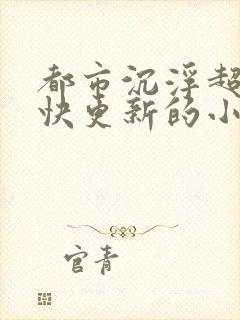 都市沉浮超
快更新的小
官青